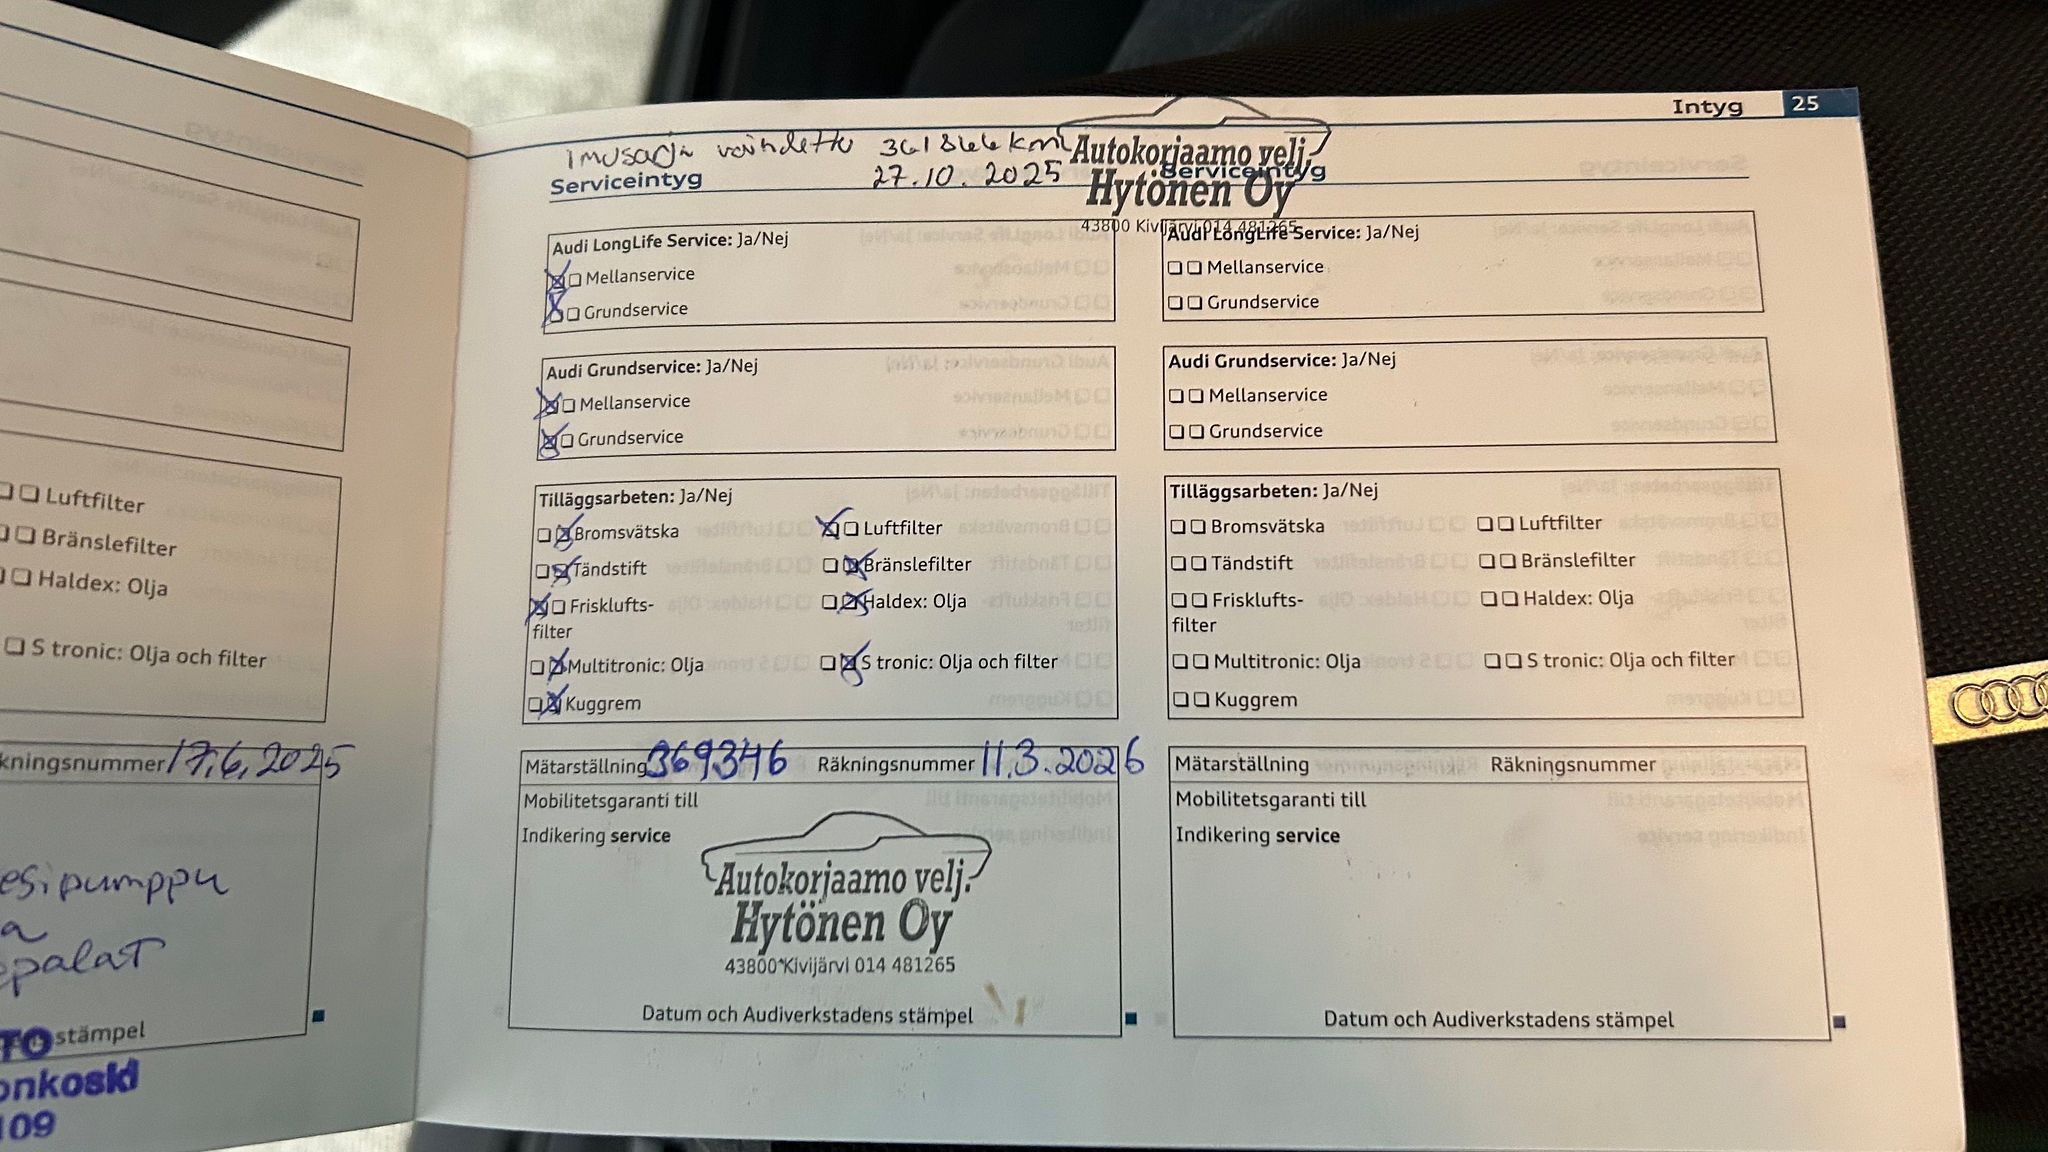 Luftfilter
Bränslefilter
Haldex: Olja
S tronic: Olja och filter
17.6.2025
stämpel
109
Intyg 25
Imusarja vaihdettu 361866 km
27.10.2025
Autokorjaamo velj.
Hytönen Oy
43800 Kivijärvi 014 481265
Serviceintyg
Audi LongLife Service: Ja/Nej
Mellanservice
Grundservice
Audi Grundservice: Ja/Nej
Mellanservice
Grundservice
Tilläggsarbeten: Ja/Nej
Bromsvätska Luftfilter
Tändstift Bränslefilter
Frisklufts- Haldex: Olja
filter
Multitronic: Olja S tronic: Olja och filter
Kuggrem
Mätarställning 369346 Räkningsnummer 11.3.2026
Mobilitetsgaranti till
Indikering service
Autokorjaamo velj.
Hytönen Oy
43800 Kivijärvi 014 481265
Datum och Audiverkstadens stämpel
Serviceintyg
Audi LongLife Service: Ja/Nej
Mellanservice
Grundservice
Audi Grundservice: Ja/Nej
Mellanservice
Grundservice
Tilläggsarbeten: Ja/Nej
Bromsvätska Luftfilter
Tändstift Bränslefilter
Frisklufts- Haldex: Olja
filter
Multitronic: Olja S tronic: Olja och filter
Kuggrem
Mätarställning Räkningsnummer
Mobilitetsgaranti till
Indikering service
Datum och Audiverkstadens stämpel